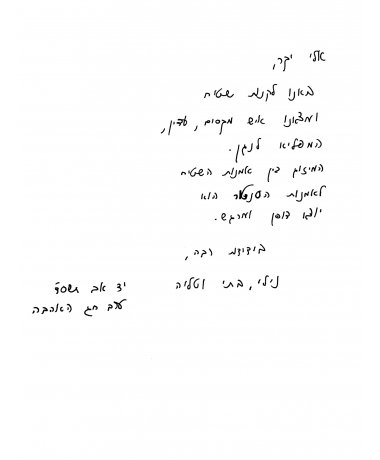 אלי יקר,
באנו לקנות שטיח
ומצאנו איש מקסים, עדין,
המפליא לנגן.
המיזוג בין אמנות השטיח
לאמנות הסנטור הוא
יוצא דופן ומרגש.
בידידות רבה,
נילי, בתי וטליה
יד אב תשסד
ערב חג האהבה